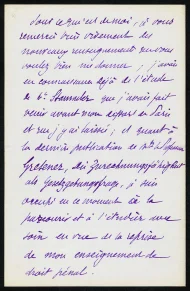 Pour ce qui est de moi, je vous
remercie bien vivement des
nouveaux renseignements que vous
voulez bien me donner, j'avais
eu connaissance déjà de l'étude
de Stammler que j'avais fait
venir avant mon départ de Paris
et que j'y ai laissée, et quant à
la dernière publication de
Gretener, die Zurechnungsfähigkeit
als Gesetzgebungsfrage, je suis
occupé en ce moment de la
parcourir et à l'étudier avec
soin en vue de la reprise
de mon enseignement de
droit pénal.